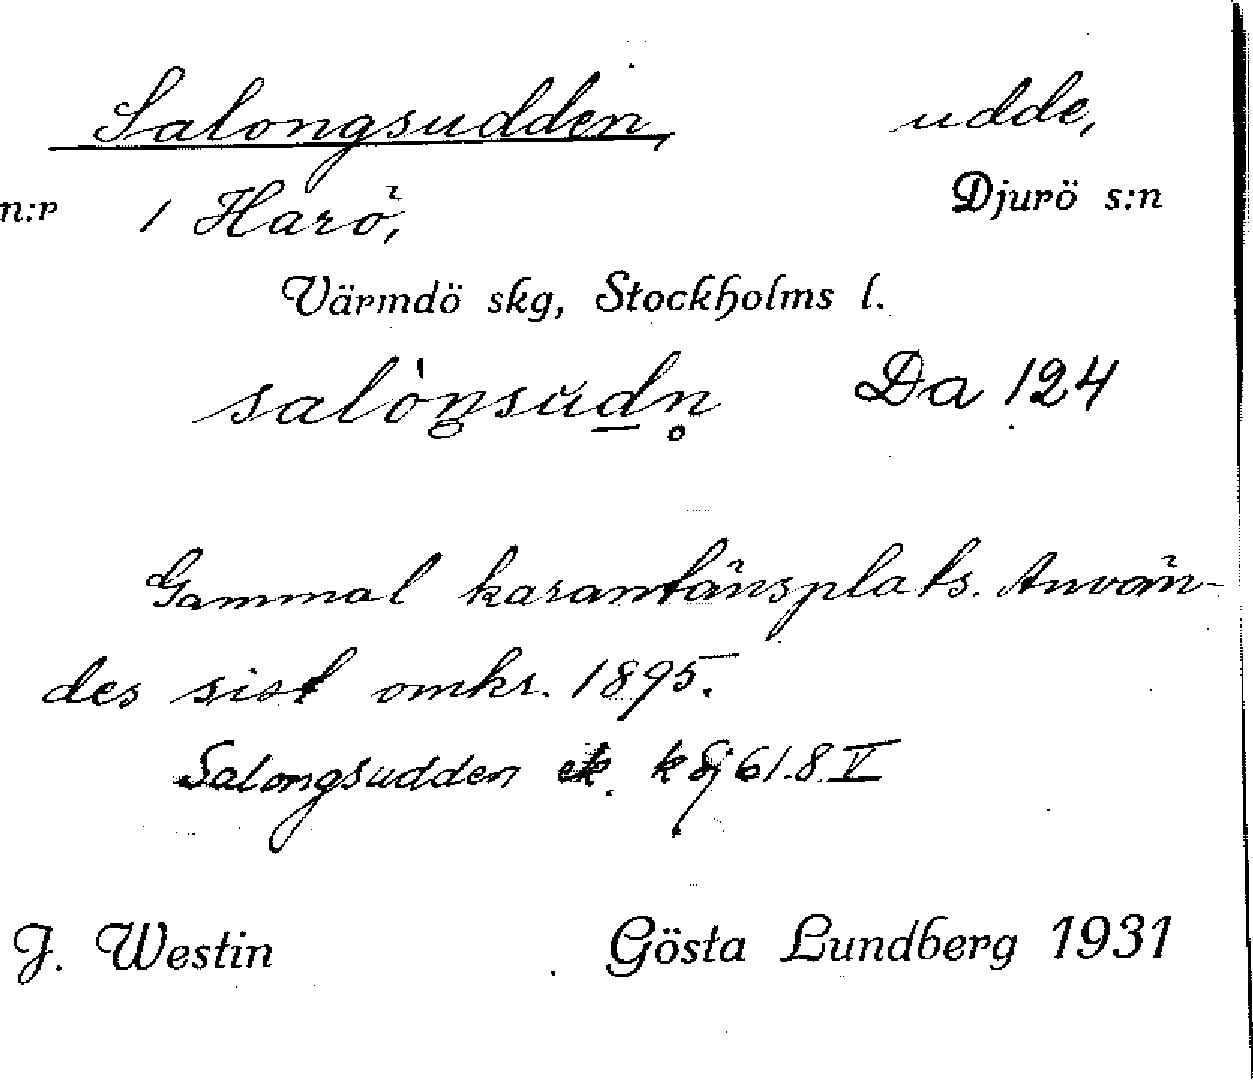 Salongsudden, udde,
n:r 1 Harö, Djurö s:n
Värmdö skg, Stockholms l.
salòŋsudn̥ Da 124
Gammal karantänsplats. Använ-
des sist omkr. 1895.
Salongsudden ek. k Sj 61.8.V
J. Westin Gösta Lundberg 1931